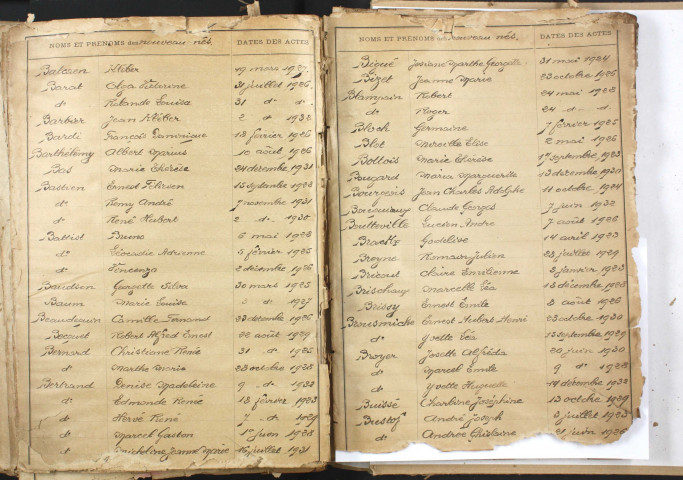 NOMS ET PRÉNOMS des nouveau nés. DATES DES ACTES
Balesen Kléber 19 mars 1927
Barat Olga Victorine 31 juillet 1926
dt Rolande Louisa 31 dt dt
Barbier Jean Kléber 2 dt 1932
Bardi François Dominique 13 février 1926
Barthélémy Albert Marius 10 août 1926
Bas Marie Thérèse 24 décembre 1931
Bastien Ernest 15 septembre 1923
dt Rémy André 7 novembre 1931
dt René Hubert 2 dt
Battist Bruno 6 mai 1928
dt Léocadie Adrienne 5 février 1925
dt Vincenza 2 décembre 1926
Baudson Georgette Silva 30 mars 1925
Baum Marie Louise dt 1927
Beaudequin Camille Fernand 23 décembre 1926
Becquet Robert Alfred Ernest 22 août 1929
Bernard Christiane Renée 31 dt 1925
dt Marthe Marie 23 octobre 1928
Bertrand Denise Madeleine 9 dt 1932
dt Edmonde Renée 13 février 1923
dt Hervé René 7 dt 1929
dt Marcel Gaston 1er juin 1928
dt Micheline Jeanne Marie 16 juillet 1931
NOMS ET PRÉNOMS des nouveau nés. DATES DES ACTES
Bigué Josiane Marthe Georgette 31 mai 1924
Bizet Jeanne Marie 23 octobre 1926
Blampain Robert 24 mai 1923
dt Roger 24 dt dt
Bloch Germaine 7 février 1925
Blot Mireille Elise 2 mai 1926
Bottois Marie Thérèse 1er septembre 1923
Bougard Maria Marguerite 13 décembre 1930
Bourgeois Jean Charles Adolphe 11 octobre 1924
Claude Georges 7 juin 1932
Boutteville Lucien André 7 août 1926
Godelive 14 avril 1923
Breyne Romain Julien 23 juillet 1929
Bricout Claire Emilienne 3 janvier 1923
Brischoux Marcelle Léa 13 décembre 1925
Brissy Ernest Emile 3 août 1926
Brousmiche Ernest Hubert Henri 23 octobre 1930
dt Yvette Léa 13 septembre 1929
Broyer Josette Alfréda 20 juin 1930
dt Marcel Emile 9 dt 1928
dt Yvette Huguette 14 décembre 1932
Buissé Charline Joséphine 13 octobre 1929
Bustof André Joseph 3 juillet 1923
dt Andrée Ghislaine 21 juin 1926